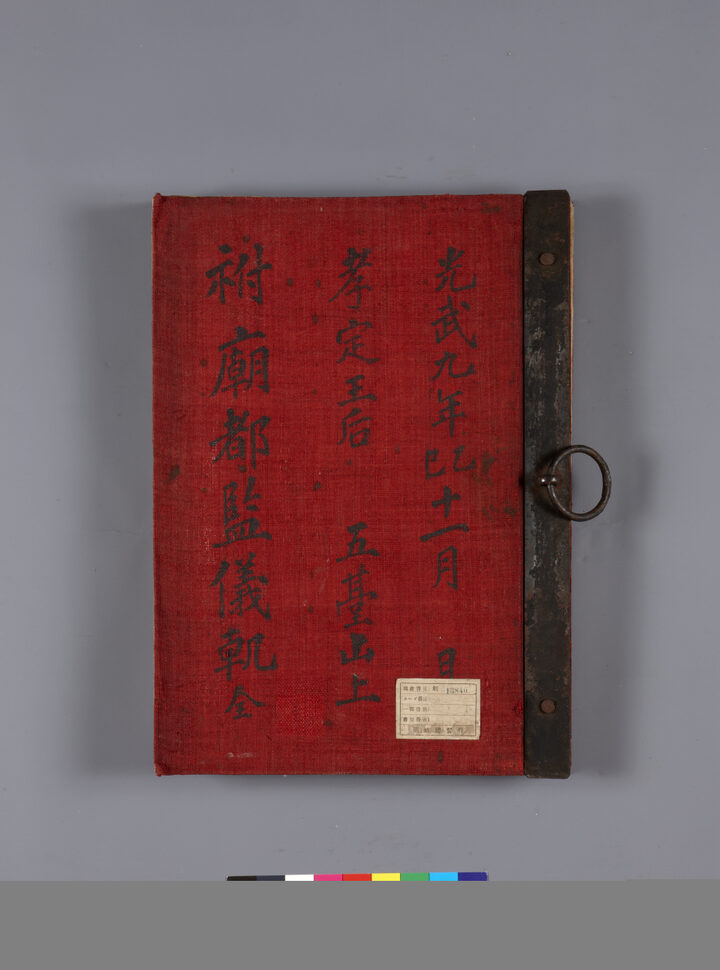 光武九年乙巳十一月 日
孝定王后 五臺山上
祔廟都監儀軌全
13840